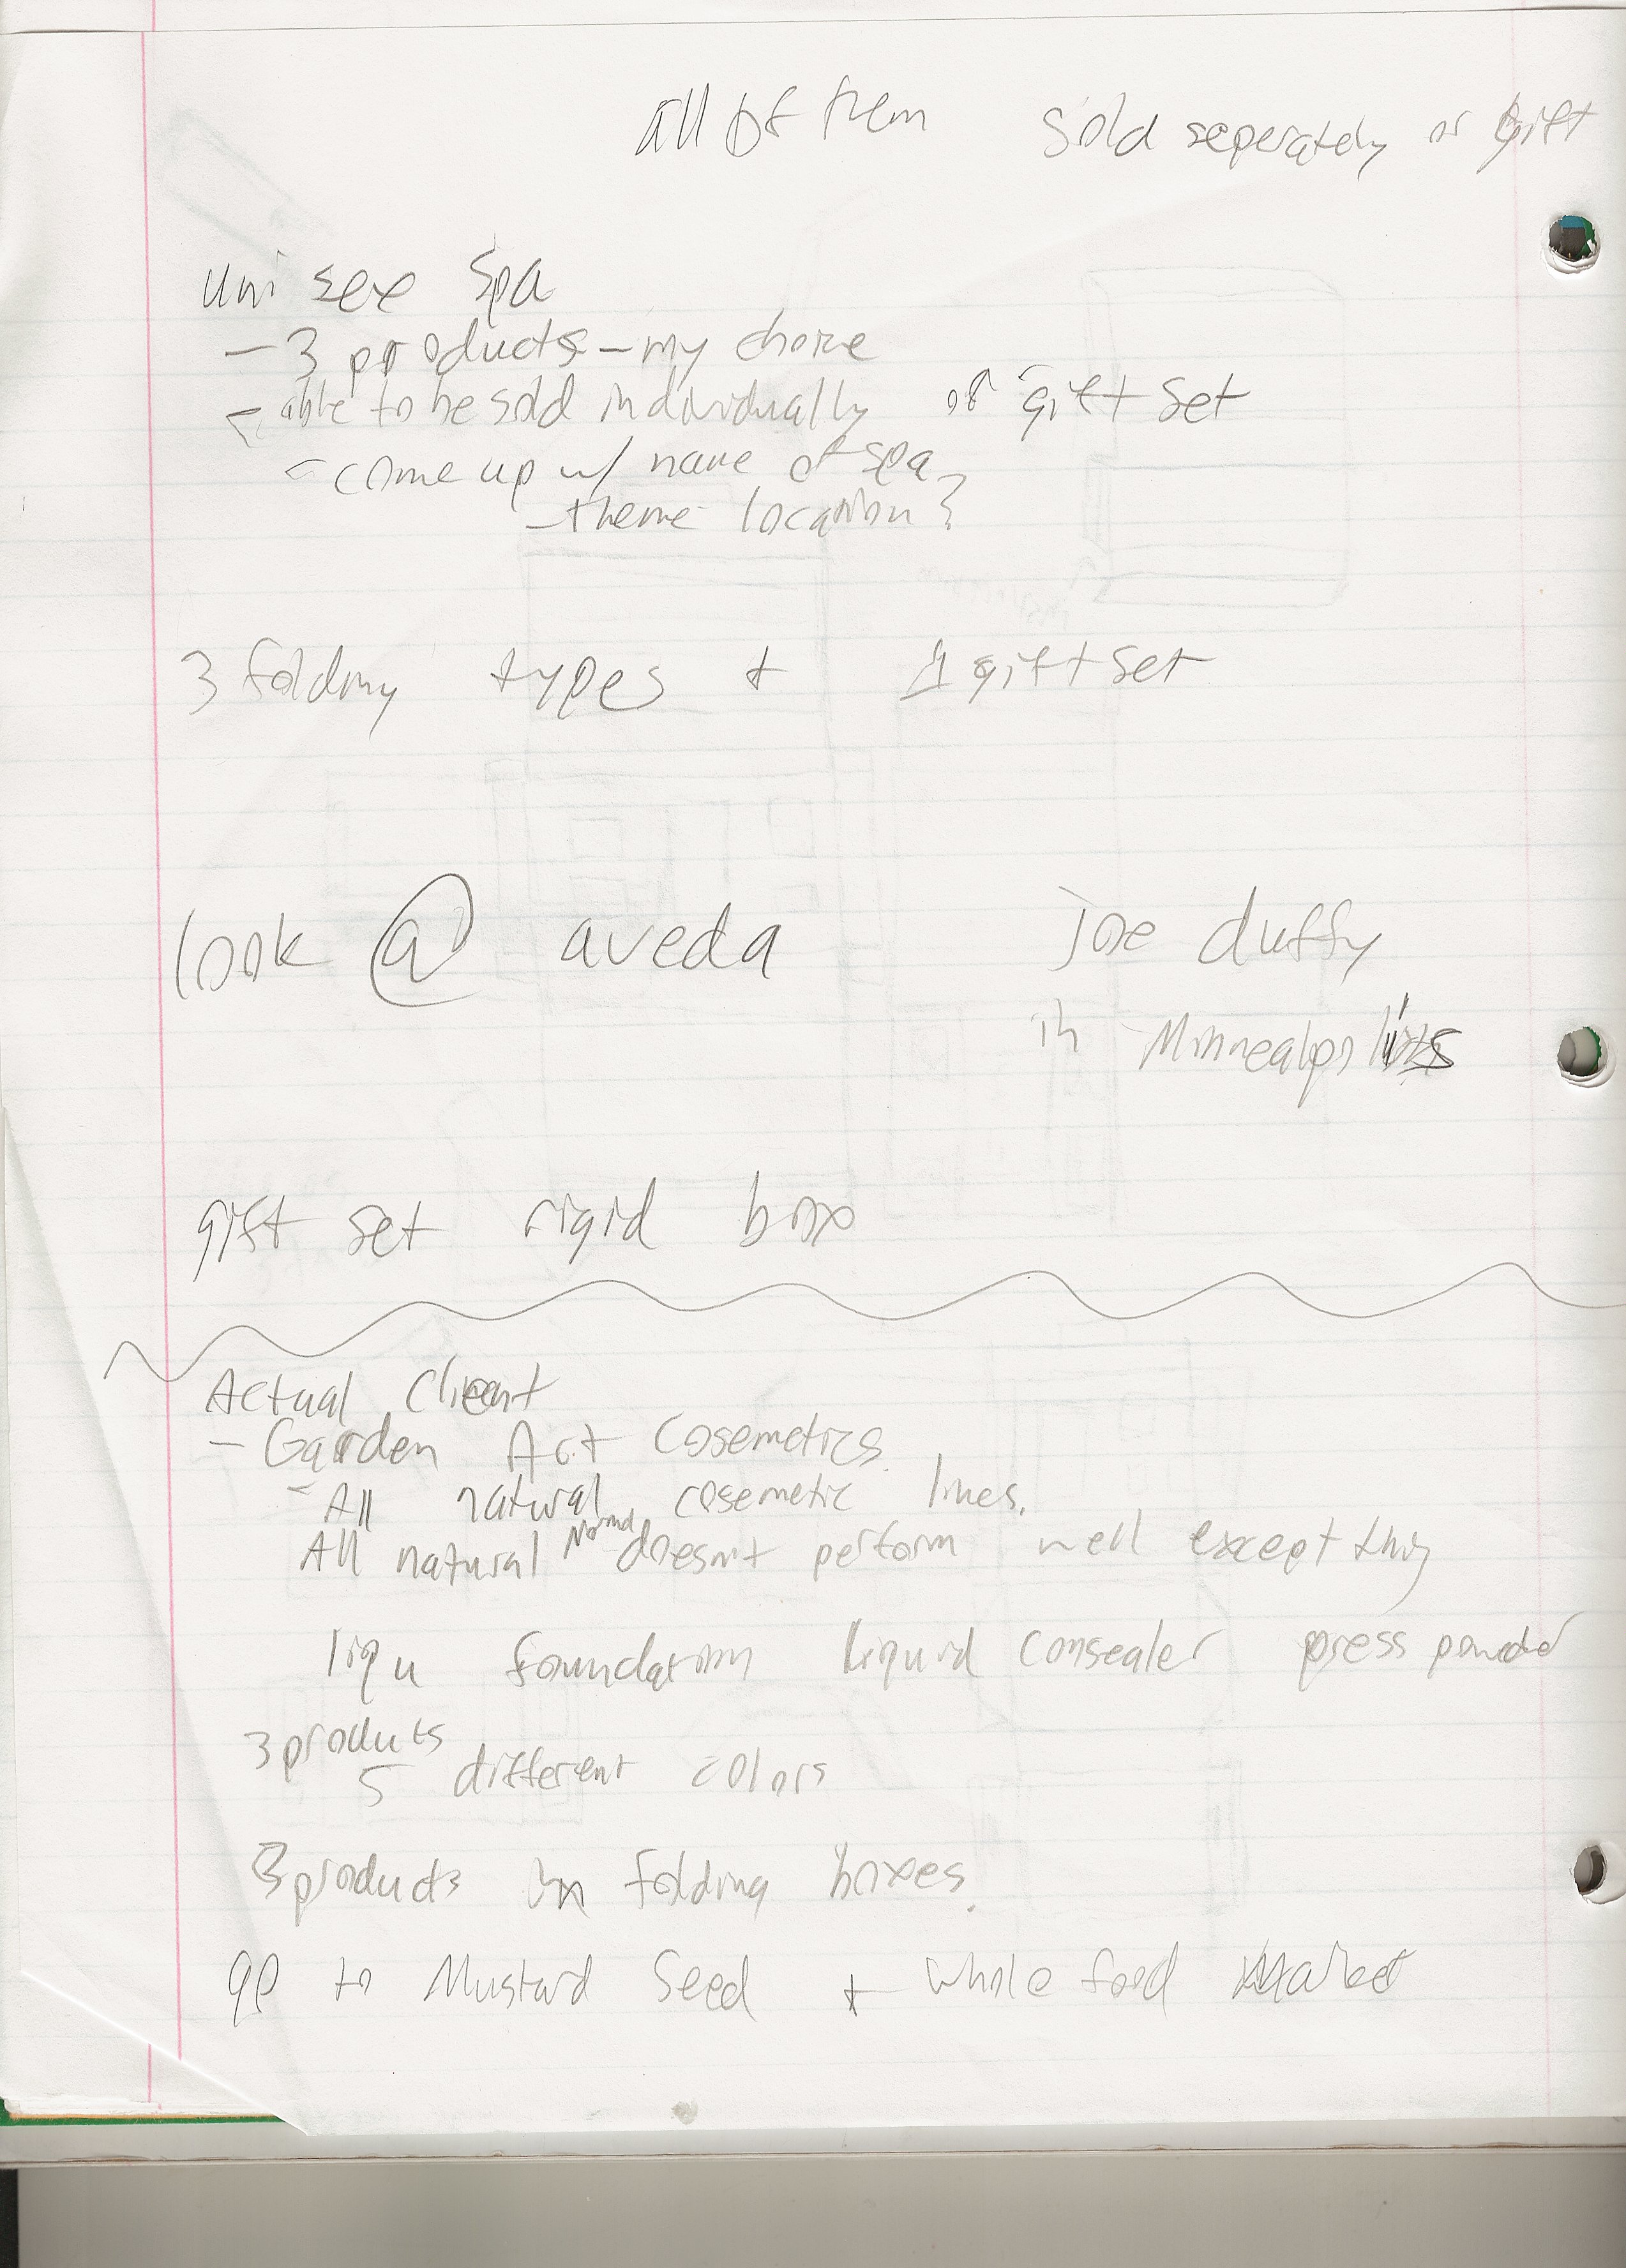 All of them sold seperately or gift
uni sex spa
- 3 products - my choice
- able to be sold individually or gift set
- come up w/ name of spa
- theme location?
3 folding types + 1 gift set
look @ aveda joe duffy
in Minnealpolis
gift set rigid box
Actual Client
- Garden Art Cosemetics
- All natural cosemetic lines.
All natural Normal doesnt perform well except this
liqu foundation liquid consealer press powder
3 produts
5 different colors
3 products in folding boxes.
go to Mustard Seed + whole food Market